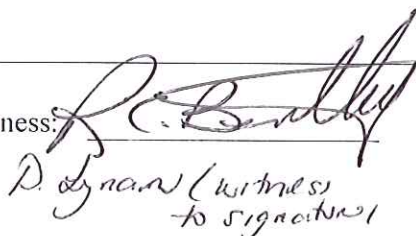 ness: R. C. Bentley
D. Lynam (witness
to signature)